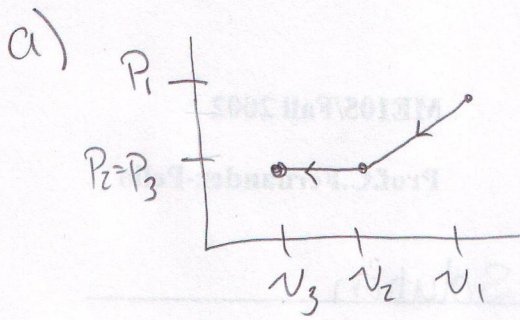 a)
P₁
P₂=P₃
v₃ v₂ v₁